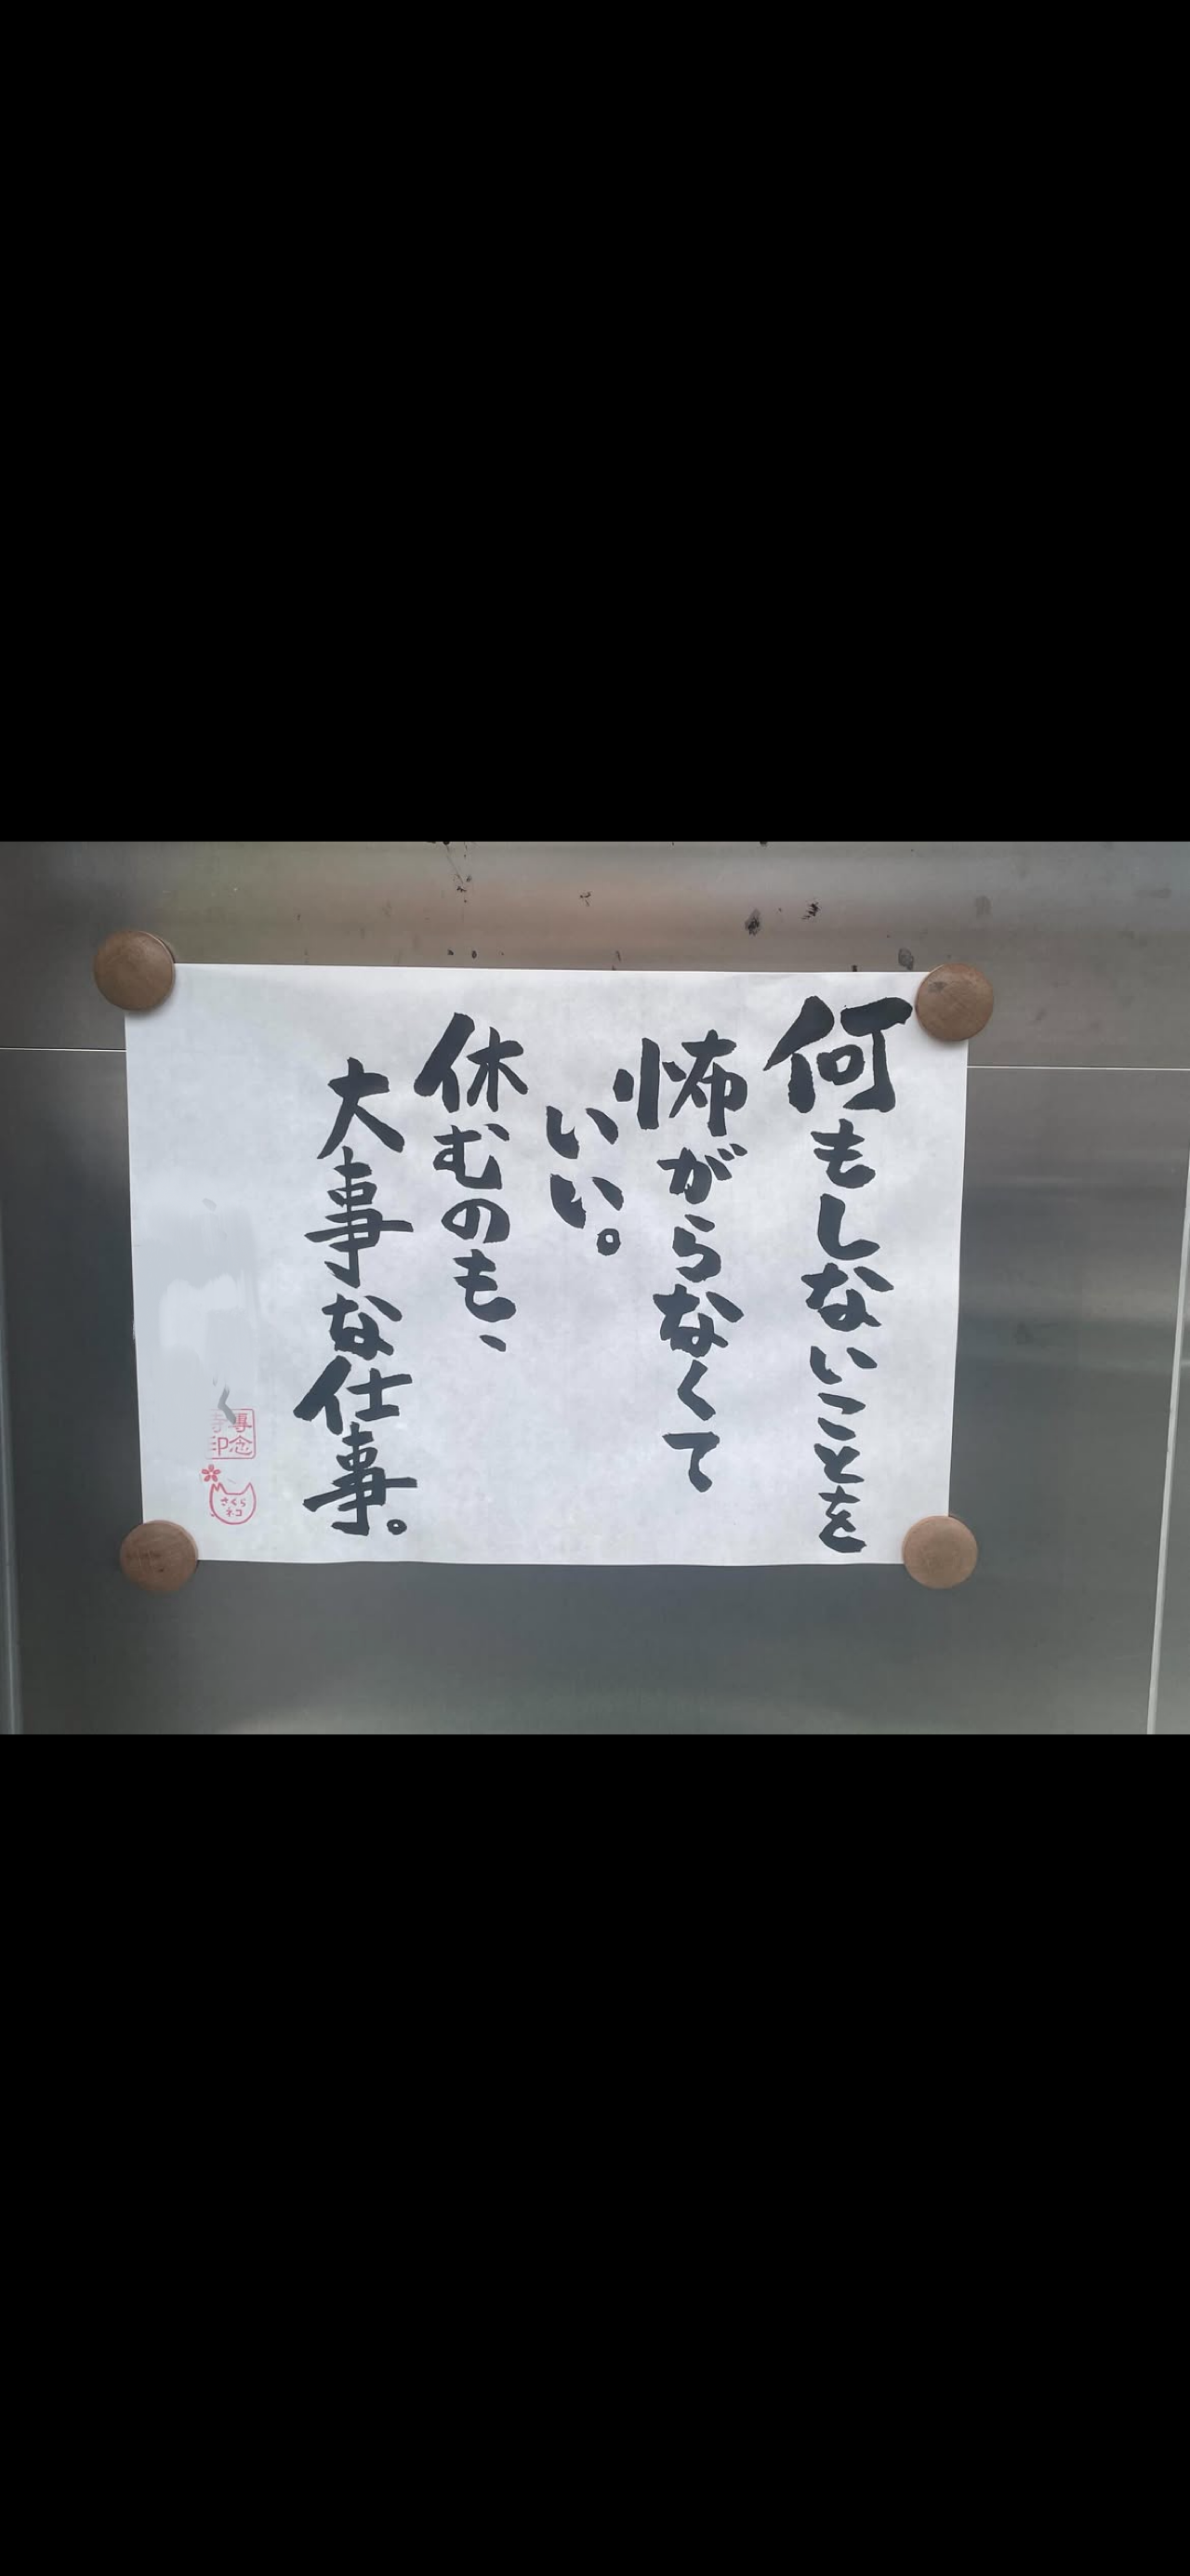 何もしないことを
怖がらなくて
いい。
休むのも、
大事な仕事。
専念
寺印
さくら
ネコ